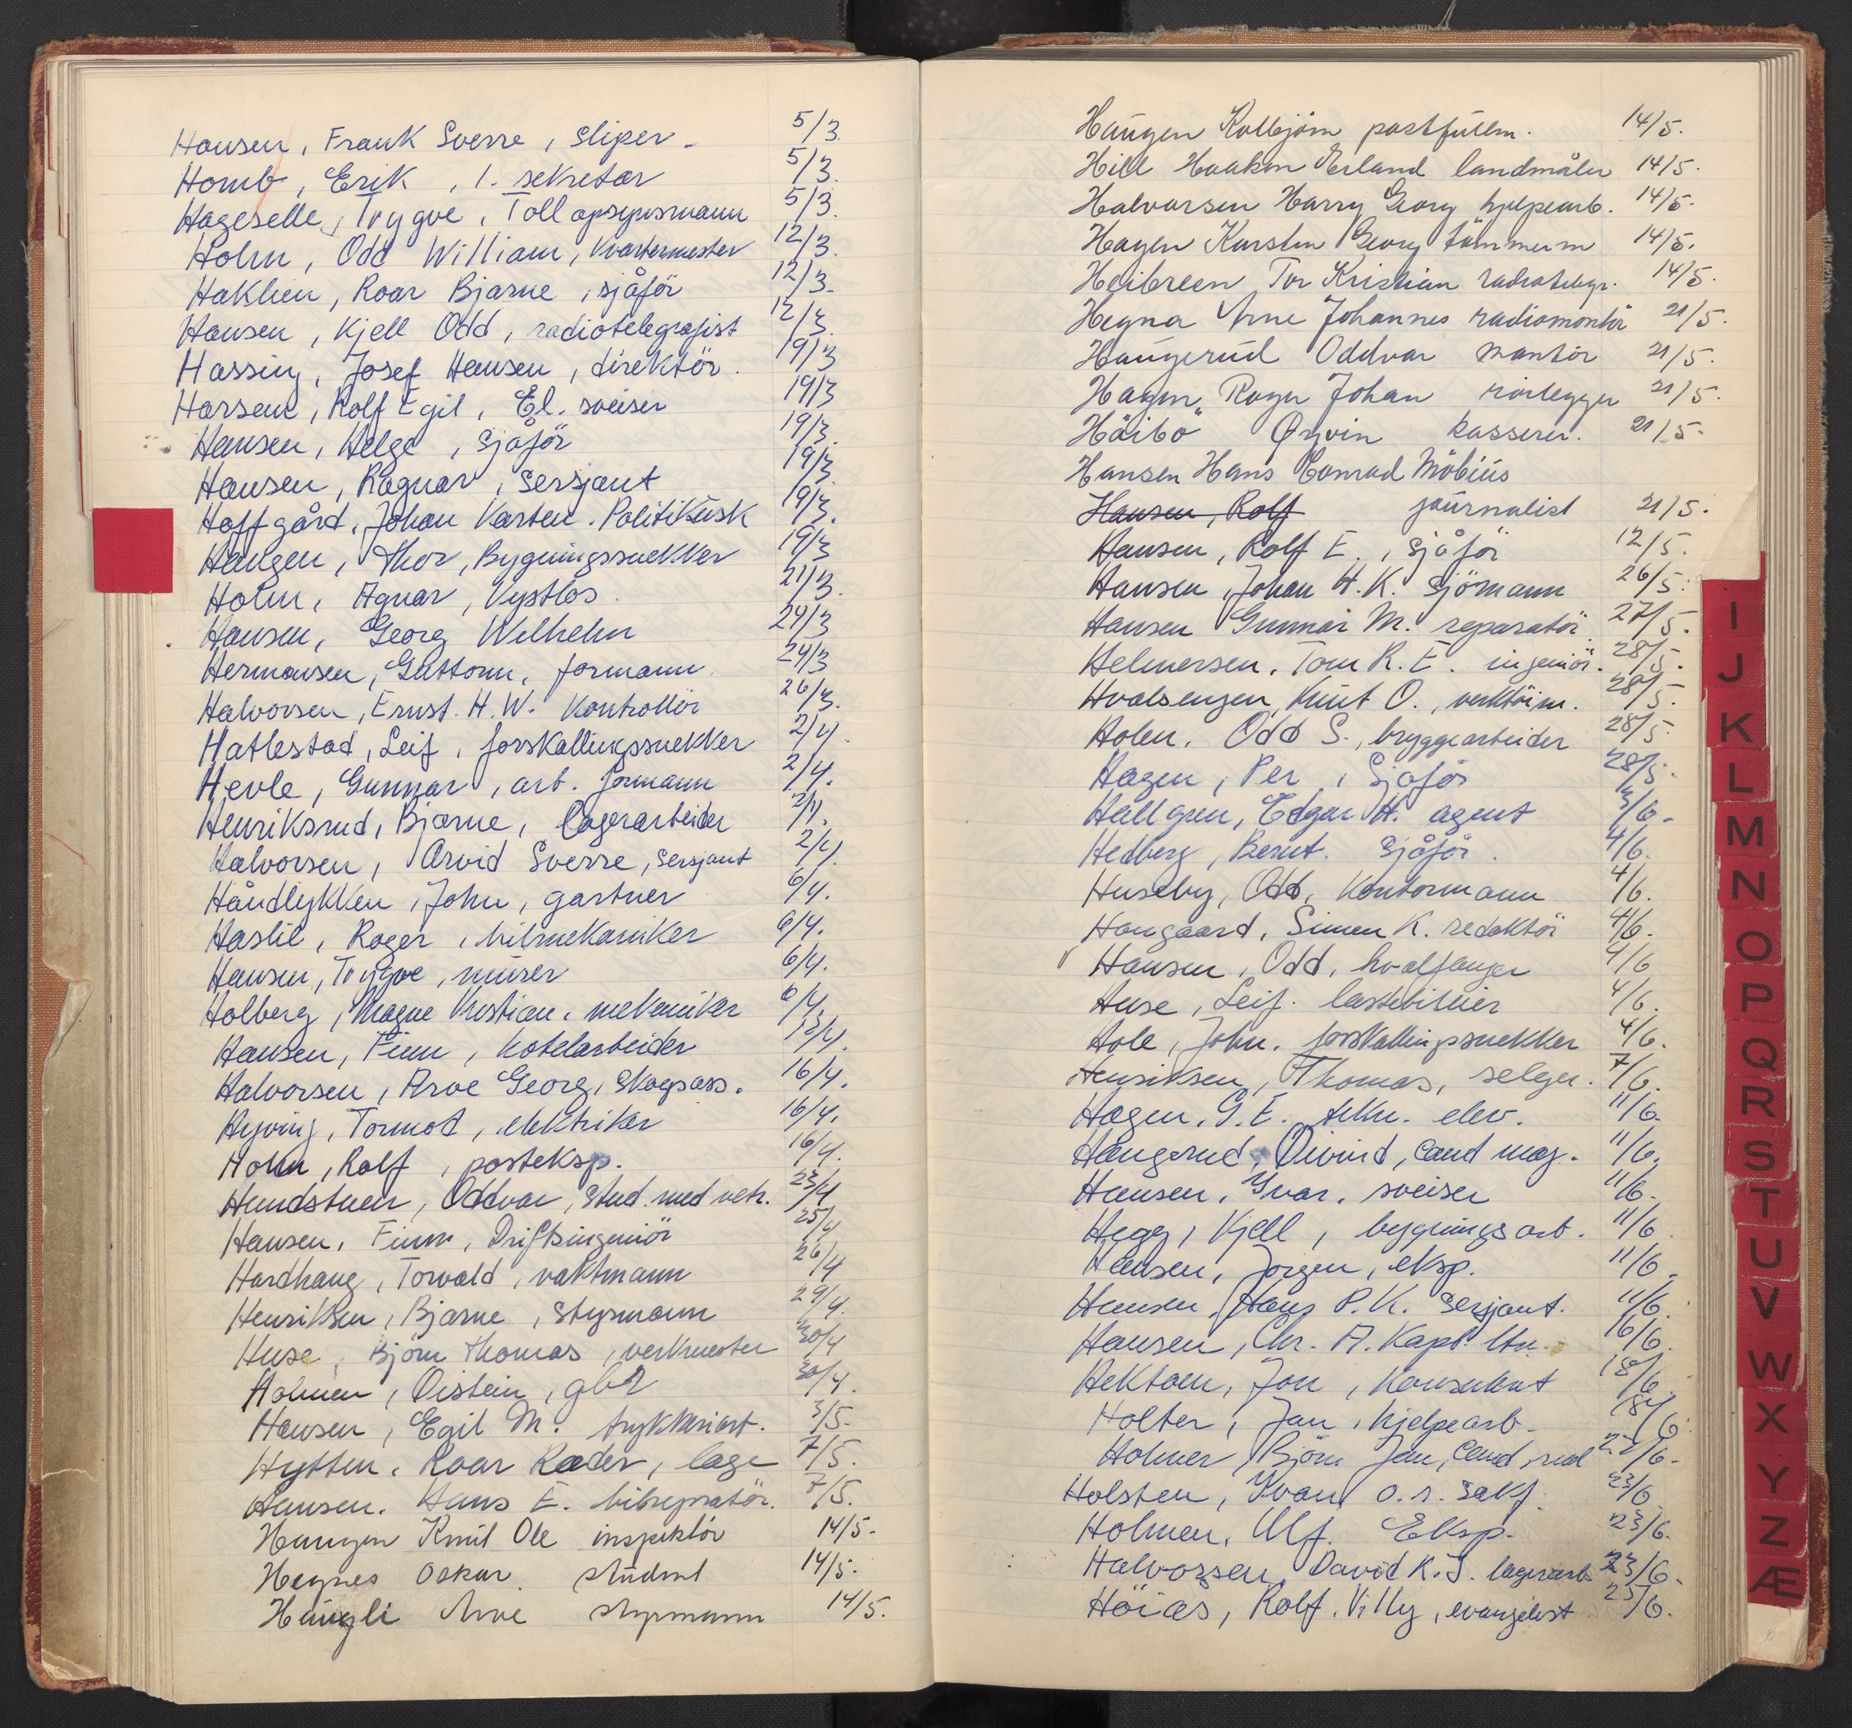 Hansen, Frank Sverre, Sliper. 5/3.
Homb, Erik, 1. sekretær 5/3.
Hageselle, Trygve, Tollopsynsmann 5/3.
Holm, Odd William, Kvartermester 12/3.
Hakhen, Roar Bjarne, sjåför 12/3.
Hansen, Kjell Odd, radiotelegrafist 12/3.
Hassing, Josef Hansen, direktör. 19/3
Hansen, Rolf Egil, El. sveiser 19/3
Hansen, Helge, Sjåför 19/3.
Hansen, Ragnar, Sersjant 19/3.
Hoffgård, Johan Karsten. Politikusk 19/3.
Haugen, Thor, Bygningssnekker 19/3
Holm, Agnar, Vystlos. 21/3.
Hansen, Georg Wilhelm 24/3
Hermansen, Guttorm, formann. 24/3
Halvorsen, Ernst. H. W. Kontrollör 26/3.
Hatlestad, Leif, forskallingssnekker 2/4.
Hevle, Gunnar, arb. formann 2/4.
Henriksrud, Bjarne, lagerarbeider 2/4.
Halvorsen, Arvid Sverre, Sersjant 2/4.
Håndlykken, John, gartner 6/4.
Haslie, Roger, bilmekaniker 6/4.
Hansen, Trygve, murer 6/4.
Holberg, Magne Kristian, mekaniker 6/4.
Hansen, Finn, Hotelarbeider 13/4.
Halvorsen, Arve Georg, Skogsass. 16/4.
Hyving, Tormod, elektriker 16/4.
Holm, Rolf, posteksp. 16/4.
Hundstuen, Oddvar, Stud. med vetr. 23/4
Hansen, Finn, Driftsingeniör 25/4
Hardhaug, Torvald, vaktmann 26/4
Henriksen, Bjarne, Styrmann 29/4.
Huse, Björn Thomas, verkmester 30/4
Holmen, Öistein, gbr 30/4.
Hansen, Egil M. trykkeriarb. 3/5.
Hytten, Roar Ræder, lege 7/5.
Hansen. Hans E. bilreparatör. 7/5.
Haugen Knut Ole inspektör 14/5.
Hegnes Oskar. student 14/5.
Haugli Arve styrmann 14/5.
Haugen Kolbjörn postfullm. 14/5.
Hill Haakon Erland landmåler 14/5.
Halvorsen Harry Georg hjelpearb. 14/5.
Hagen Karsten Georg tömmerm 14/5.
Heibreen Tor Kristian radiotelegr. 14/5.
Hegna Arne Johannes radiomontör 21/5.
Haugerud Oddvar montör 21/5.
Hagen Roger Johan rörlegger 21/5.
Höibö Ørjvin kasserer. 21/5.
Hansen Hans Conrad Möbius
Hansen, Rolf journalist 21/5.
Hansen, Rolf E., Sjåför 12/5.
Hansen, Johan H. K. Sjömann 26/5.
Hansen Gunnar M. reparatör 27/5.
Helmersen, Tom R. E. ingeniör. 28/5.
Hvalsengen, Knut O., verktöim. 28/5.
Holen. Odd S., bryggearbeider 28/5.
Hagen, Per, Sjåför 28/5.
Hallgren, Edgar H. agent 3/6.
Hedberg, Bernt. Sjåför. 4/6.
Huseby, Odd, Kontormann 4/6.
Haugaard, Simen K. redaktör 4/6.
Hansen, Odd, hvalfanger 4/6
Huse, Leif. lastebileier 4/6.
Hole, John. forskallingssnekker 4/6.
Henriksen, Thomas, selger. 7/6.
Hagen, G. E. tekn. elev. 11/6.
Haugerud, Öivind, cand mag. 11/6.
Hansen, Yvar, sveiser 11/6.
Hegg, Kjell, bygningsarb. 11/6.
Hansen, Jörgen, eksp. 11/6.
Hansen, Hans P. K. Sersjant. 11/6.
Hansen, Chr. A. Kapt. ltn. 16/6.
Hektoen, Jon, Konsulent 18/6
Holter, Jan, hjelpearb. 18/6.
Holmer, Björn Jan, cand. real 22/6.
Holsten, Yvan, o.r. sakf. 23/6
Holmen, Ulf. Eksp. 23/6.
Halvorsen, David K. J. lagerarb. 23/6.
Höiås, Rolf. Villy, evangelist 23/6.
I
J
K
L
M
N
O
P
Q
R
S
T
U
V
W
X
Y
Z
Æ